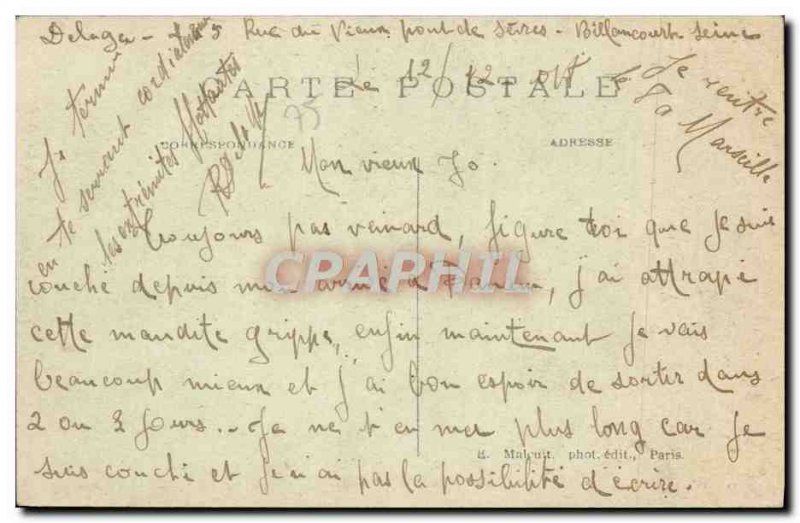 Delage - Rue du Vieux pont de Sèvres - Billancourt Seine
Le 12/12
CARTE POSTALE
Je rentre
à Marseille
75
CORRESPONDANCE
ADRESSE
Mon vieux Jo.
Toujours pas veinard, figure toi que je suis
couché depuis mon arrivé à, j'ai attrapé
cette maudite grippe, enfin maintenant je vais
beaucoup mieux et j'ai bon espoir de sortir dans
2 ou 3 jours.. Je ne t'en met plus long car je
suis couché et je n'ai pas la possibilité d'écrire.
Je termine
en te serrant cordialement
les extrémités flottantes
CPAPHIL
E. Malcuit, phot. édit., Paris.